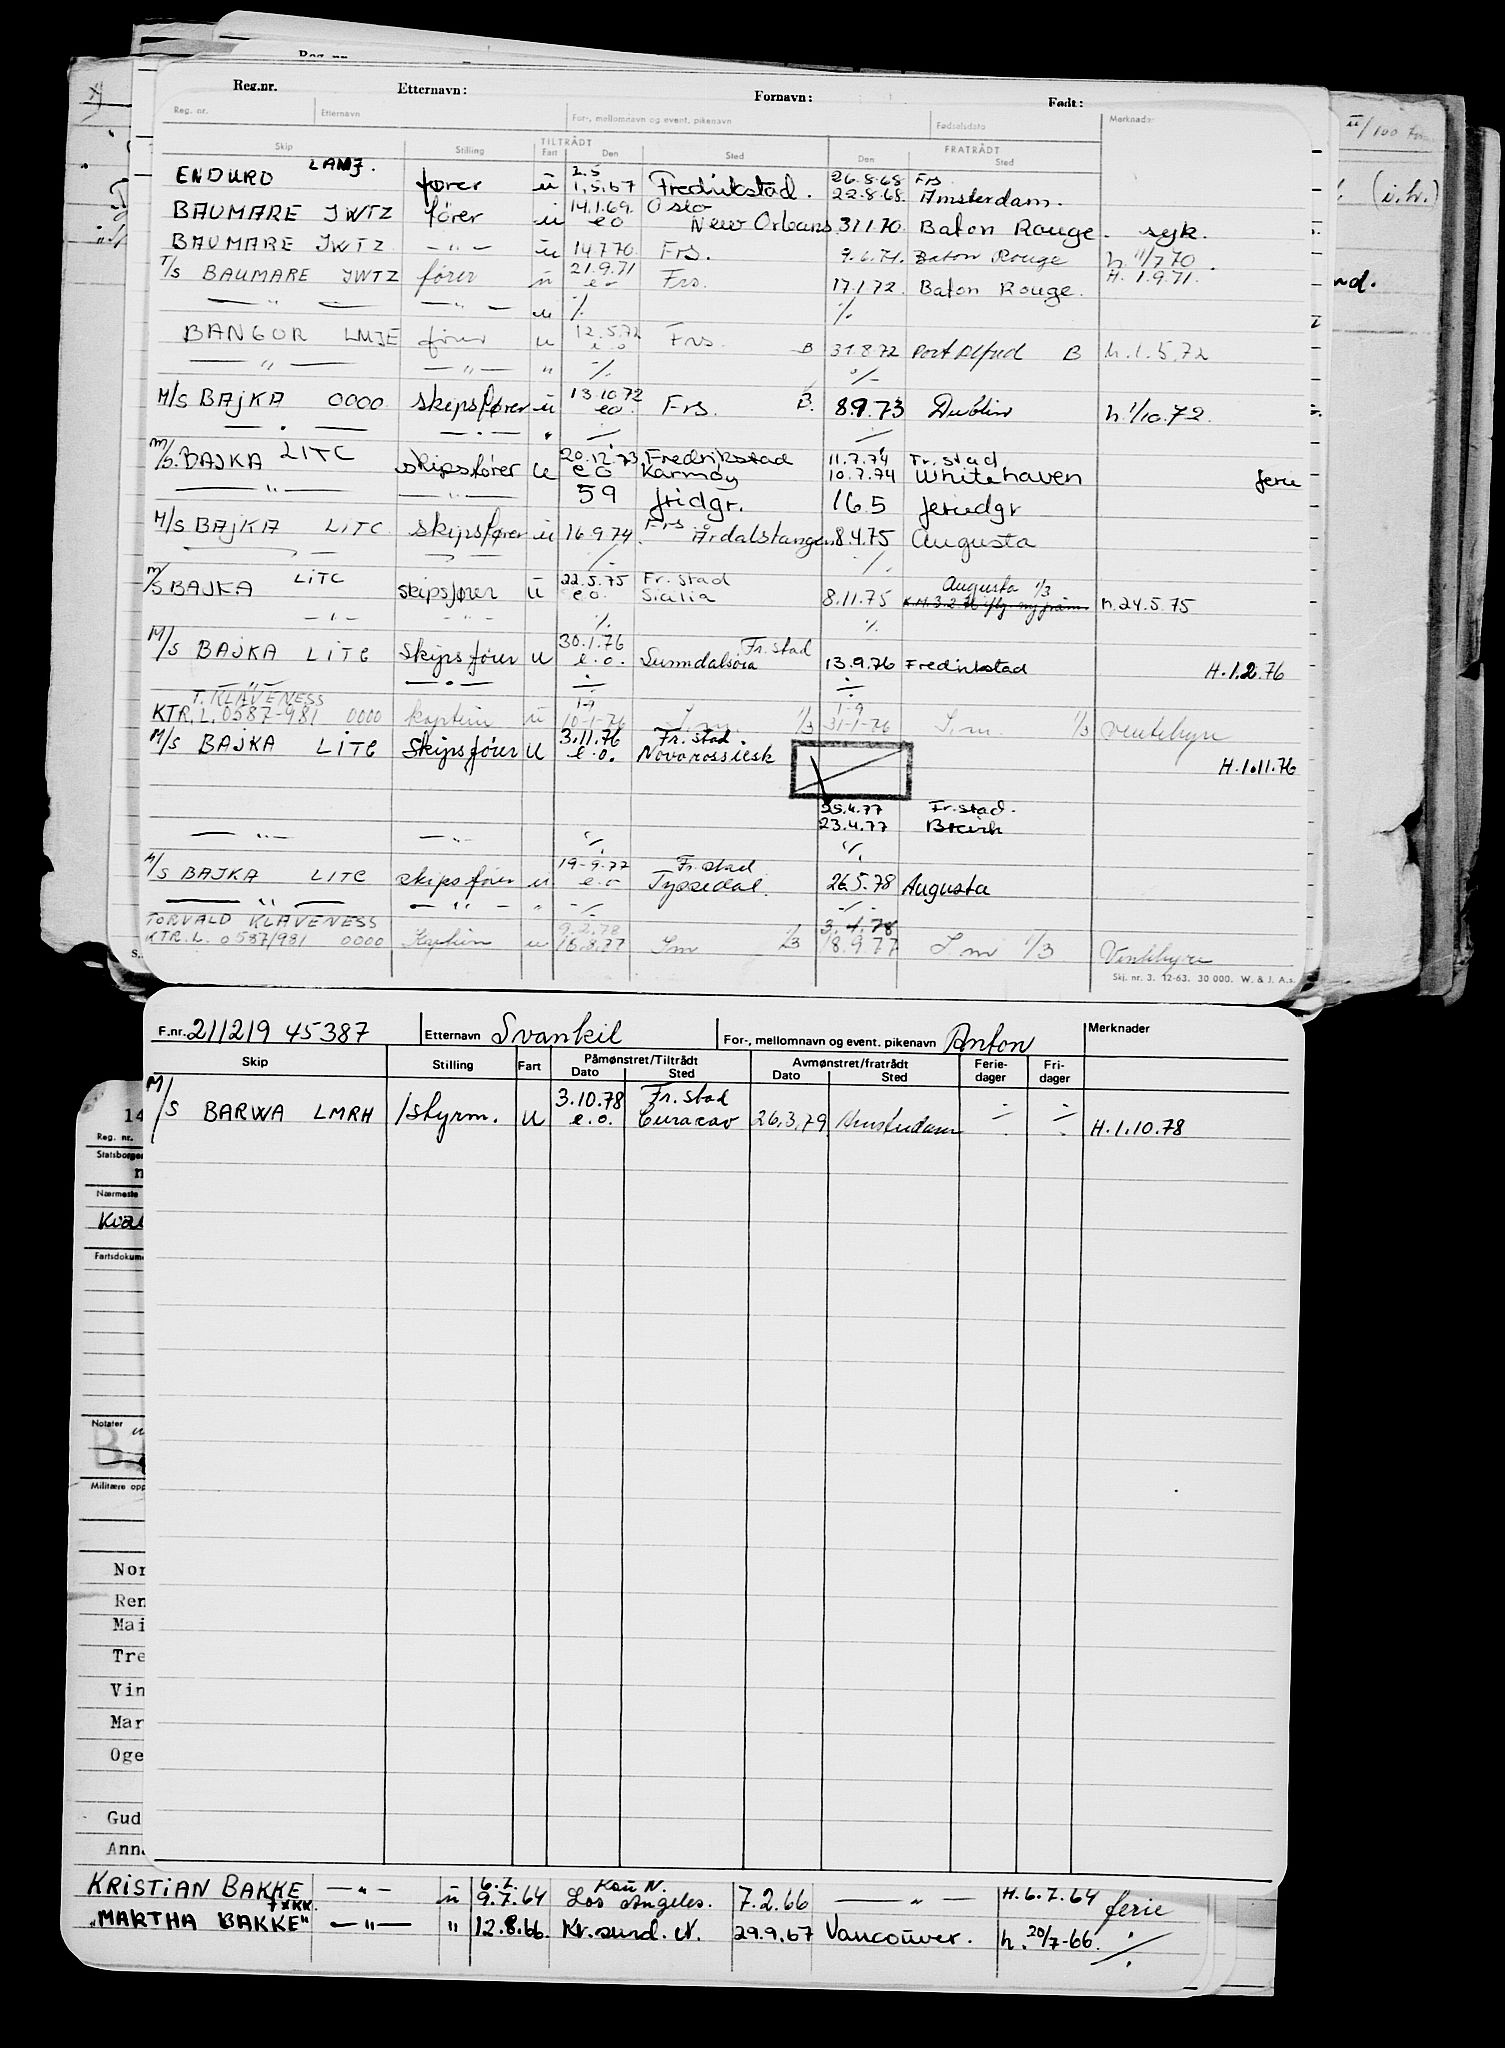 Reg.nr. Etternavn: Fornavn: Født:
Reg. nr. Etternavn For-, mellomnavn og event. pikenavn Fødselsdato Merknader
TILTRÅDT FRATRÅDT
Skip Stilling Fart Den Sted Den Sted
2.5 26.8.68 Frs.
ENDURO LAMJ. fører u 1.5.67 Fredrikstad. 22.8.68 Amsterdam.
14.1.69. Oslo
BAUMARE JWTZ fører u eo New Orleans 31.1.70. Baton Rouge. syk.
BAUMARE JWTZ — " — u 14.7.70. Frs. 9.6.71. Baton Rouge h 11/7 70.
21.9.71 H. 1.9.71.
T/S BAUMARE JWTZ fører u eo Frs. 17.1.72. Baton Rouge.
— " — — " — u %. %.
12.5.72
BANGOR LMJE fører u e.o Frs. B 31.8.72 Port Alfred B h.1.5.72
— " — — " — " %. %
13.10.72
M/S BAJKA 0000 skipsfører u eo. Frs. B. 8.9.73 Dublin h.1/10.72.
20.12.73 Fredrikstad 11.7.74 Fr.stad
M/S. BAJKA LITC skipsfører u eo Karmøy 10.7.74 Whitehaven ferie
— " — — " — 59 fridgr. 16.5 feriedgr
M/S BAJKA LITC skipsfører u 16.9.74. Frs Årdalstangen 8.4.75 Augusta
22.5.75 Fr.stad Augusta 1/3
M/S BAJKA LITC skipsfører u e.o. Sicilia 8.11.75 h.24.5.75
— " — — " — %. %.
30.1.76 Fr.stad
M/S BAJKA LITC Skipsfører u e.o. Sunndalsøra 13.9.76 Fredrikstad H.1.2.76
T. KLAVENESS 1-9 1-9
KTR.L. 0587-981 0000 kaptein u 10-1-76 S.m 1/3 31-1-76 S.m 1/3 Ventehyre
3.11.76 Fr.stad.
M/S BAJKA LITC Skipsfører u e.o. Novorossiesk H.1.11.76
25.4.77 Fr.stad.
23.4.77
— " — — " — %. %.
19-9-77 Fr.stad
M/S BAJKA LITC skipsfører u e.o Tyssedal. 26.5.78 Augusta
— " — — " — " %. %.
TORVALD KLAVENESS 9.2.78 3.4.78
KTR.L. 0587/981 0000 Kaptein u 16.8.77 S.m 1/3 18.9.77 S.m 1/3 Ventehyre
Skj. nr. 3. 12-63. 30 000. W. & J. A.s.
F.nr. 211219 45387 Etternavn Svankil For-, mellomnavn og event. pikenavn Anton Merknader
Skip Stilling Fart Påmønstret/Tiltrådt Avmønstret/fratrådt Feriedager Fridager
Dato Sted Dato Sted
3.10.78 Fr.stad
M/S BARWA LMRH 1styrm. u e.o. Curacao 26.3.79 Amsterdam ÷ ÷ H.1.10.78
14
Reg. nr.
Statsborger
Nærmeste
Fartsdokume
Notater
Militære opp
Nor
Ren
Mai
Tre
Vin
Mar
Oge
Gud
Ann
6.7. Kau N.
KRISTIAN BAKKE — " — u 9.7.64 Los Angeles. 7.2.66 — " — H.6.7.64 ferie
"MARTHA BAKKE" — " — " 12.8.66. Kr.sund. N. 29.9.67 Vancouver. h.20/7-66.